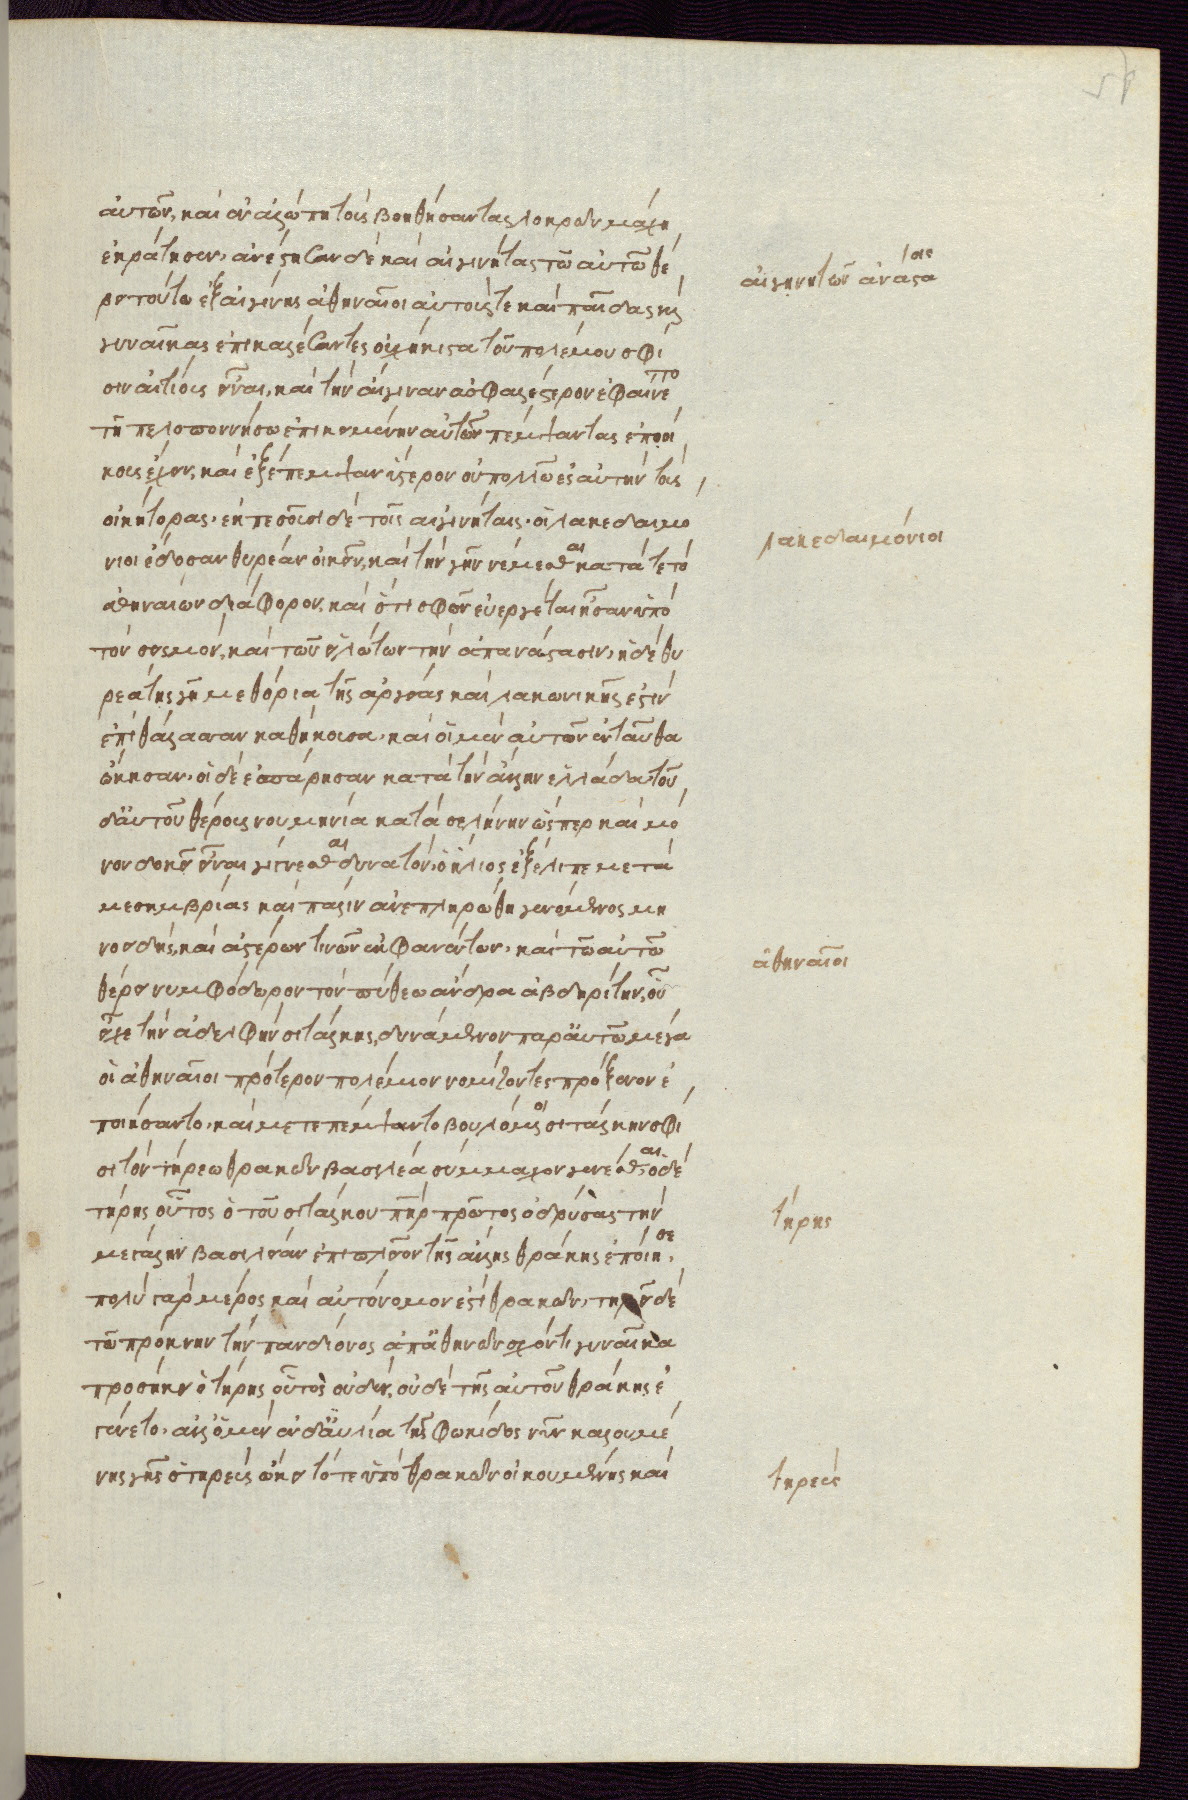 αὐτῶν, καὶ ἐν ἀλώπῃ τοὺς βοηθήσαντας λοκρῶν μάχη
ἐκράτησαν· ἀνέστησαν δὲ καὶ αἰγινήτας τῶ αὐτῶ θέ
ρει τούτω ἐξ αἰγίνης ἀθηναῖοι αὐτούς τε καὶ παῖδας καὶ
γυναῖκας ἐπικαλέσαντες οὐχ ἥκιστα τοῦ πολέμου σφί
σιν αἰτίους εἶναι, καὶ τὴν αἴγιναν ἀσφαλέστερον ἐφαίνετο
τῆ πελοποννήσω ἐπικειμένην αὐτῶν πέμψαντας ἐποί
κους ἔχειν, καὶ ἐξέπεμψαν ὕστερον οὐ πολλῶ ἐς αὐτὴν τοὺς
οἰκήτορας· ἐκπεσοῦσι δὲ τοῖς αἰγινήταις· οἱ λακεδαιμό
νιοι ἔδοσαν θυρέαν οἰκεῖν, καὶ τὴν γῆν νέμεσθαι κατά τε τὸ
ἀθηναίων διάφορον, καὶ ὅτι σφῶν εὐεργέται ἦσαν ὑπὸ
τὸν σεισμόν, καὶ τῶν εἱλώτων τὴν ἐπανάστασιν· ἡ δὲ θυ
ρεᾶτις γῆ μεθόρια τῆς ἀργείας καὶ λακωνικῆς ἐστὶν
ἐπὶ θάλασσαν καθήκουσα· καὶ οἱ μὲν αὐτῶν ἐνταῦθα
ᾤκησαν· οἱ δὲ ἐσπάρησαν κατὰ τὴν ἄλλην ἑλλάδα· τοῦ
δ' αὐτοῦ θέρους νουμηνία κατὰ σελήνην ὥσπερ καὶ μό
νον δοκεῖ εἶναι γίνεσθαι δυνατόν, ὁ ἥλιος ἐξέλιπε μετὰ
μεσημβρίας καὶ πάλιν ἀνεπληρώθη γενόμενος μη
νοειδής, καὶ ἀστέρων τινῶν ἐκφανέντων· καὶ τῶ αὐτῶ
θέρει νυμφόδωρον τὸν πύθεω ἄνδρα ἀβδηρίτην, οὗ
εἶχε τὴν ἀδελφὴν σιτάλκης, δυνάμενον παρ' αὐτῶ μέγα
οἱ ἀθηναῖοι πρότερον πολέμιον νομίζοντες πρόξενον ἐ
ποιήσαντο, καὶ μετεπέμψαντο βουλόμενοι σιτάλκην σφί
σι τὸν τήρεω θρακῶν βασιλέα σύμμαχον γενέσθαι. ὁ δὲ
τήρης οὗτος ὁ τοῦ σιτάλκου πατὴρ πρῶτος ὀδρύσαις τὴν
μεγάλην βασιλείαν ἐπιπλεῖον τῆς ἄλλης θράκης ἐποίησε·
πολὺ γὰρ μέρος καὶ αὐτόνομον ἐστὶ θρακῶν· τηρεῖ δὲ
τῶ πρόκνην τὴν πανδίονος ἀπ' ἀθηνῶν σχόντι γυναῖκα
προσήκει ὁ τήρης οὗτος οὐδέν, οὐδὲ τῆς αὐτοῦ θράκης ἐ
γένετο· ἀλλ' ὁ μὲν ἐν δαυλία τῆς φωκίδος νῦν καλουμέ
νης γῆς ὁ τηρεὺς ᾤκει τότε ὑπὸ θρακῶν οἰκουμένης καὶ
αἰγινητῶν ἀνάστασις
λακεδαιμόνιοι
ἀθηναῖοι
τήρης
τηρεύς